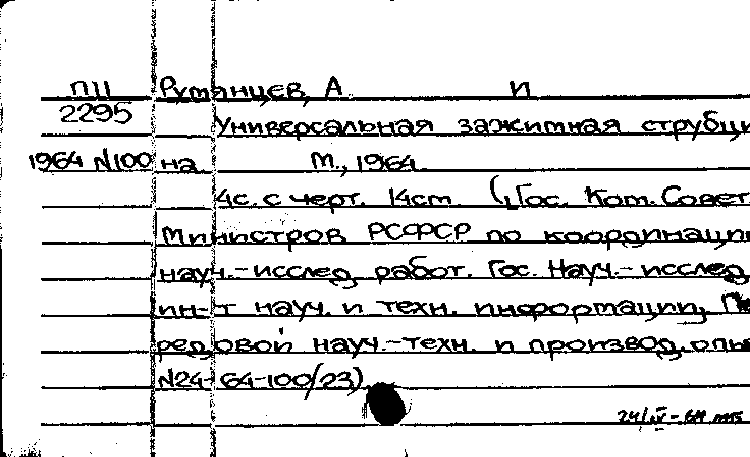 ПШ Румянцев, А И
2295 Универсальная зажимная струбци
1964 N100 на М., 1964
4с. с черт. 14см (Гос. Ком. Совет
Министров РСФСР по координаци
науч.-исслед. работ. Гос. Науч.-исслед.
ин-т науч. и техн. информации, Пе
редовой науч.-техн. и производ. опы
N24-64-100/23)
24/IV-64